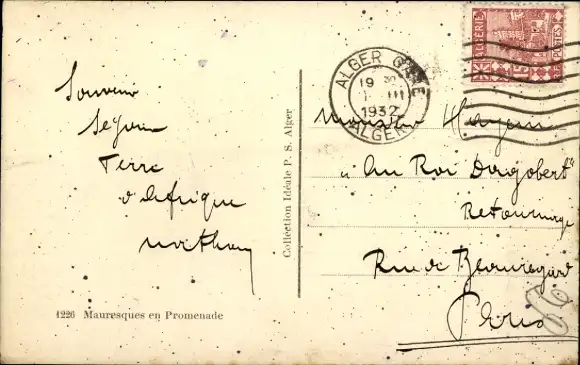 Souvenir
Terre
d'Afrique
1226 Mauresques en Promenade
Collection Idéale P. S. Alger
ALGER GARE
19
III
1932
ALGER
ALGERIE
15
POSTES
Monsieur
"Au Roi Dagobert"
Rue de Beauregard
Paris